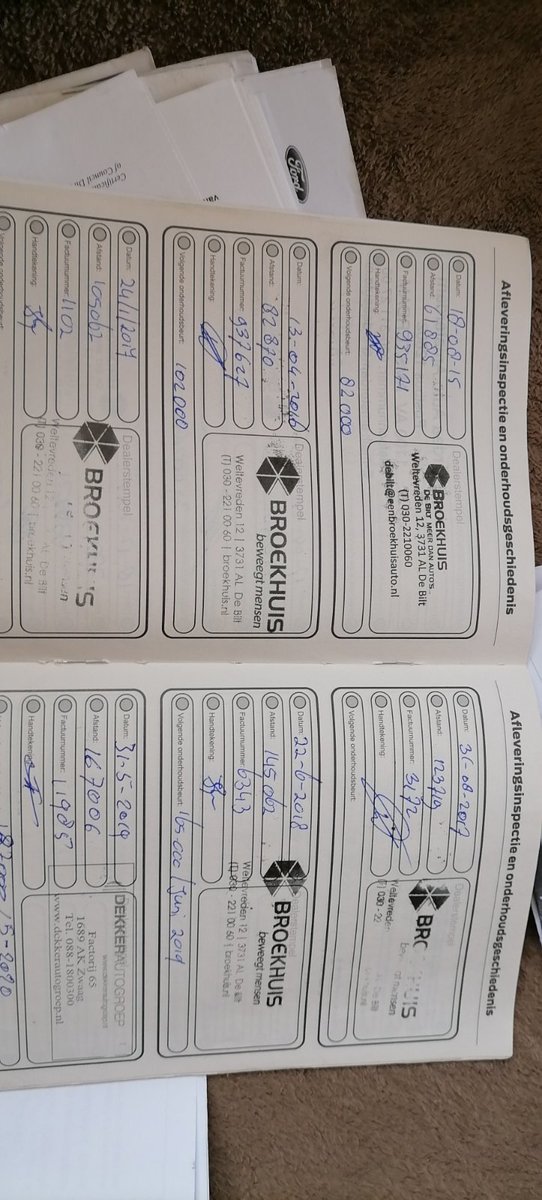 Ford
Certificate
of Council Du
Afleveringsinspectie en onderhoudsgeschiedenis
Datum: 18-08-15
Afstand: 61885
Factuurnummer: 935171
Handtekening:
Volgende onderhoudsbeurt: 82000
Dealerstempel
BROEKHUIS
DE BILT MEER DAN AUTO'S
Weltevreden 12, 3731 AL De Bilt
(T) 030-2210060
debilt@eenbroekhuisauto.nl
Datum: 13-04-2016
Afstand: 82870
Factuurnummer: 937627
Handtekening:
Volgende onderhoudsbeurt: 102000
Dealerstempel
BROEKHUIS
beweegt mensen
Weltevreden 12 | 3731 AL De Bilt
(T) 030 - 221 00 60 | broekhuis.nl
Datum: 24/1/2017
Afstand: 105062
Factuurnummer: 1102
Handtekening:
Volgende onderhoudsbeurt:
Dealerstempel
BROEKHUIS
Weltevreden 12 AL De Bilt
(T) 030 - 221 00 60 | broekhuis.nl
Afleveringsinspectie en onderhoudsgeschiedenis
Datum: 31-08-2017
Afstand: 123719
Factuurnummer: 3172
Handtekening:
Volgende onderhoudsbeurt:
Dealerstempel
BRO HUIS
Weltevreden AL De Bilt
(T) 030 - 22
Datum: 22-6-2018
Afstand: 145062
Factuurnummer: 6343
Handtekening:
Volgende onderhoudsbeurt: 165.000 / Juni 2019
Dealerstempel
BROEKHUIS
beweegt mensen
Weltevreden 12 | 3731 AL De Bilt
(T) 030 - 221 00 60 | broekhuis.nl
Datum: 31-5-2019
Afstand: 167006
Factuurnummer: 11985
Handtekening:
DEKKERAUTOGROEP
Factorij 65
1689 AK Zwaag
Tel. 088-1800300
www.dekkerautogroep.nl